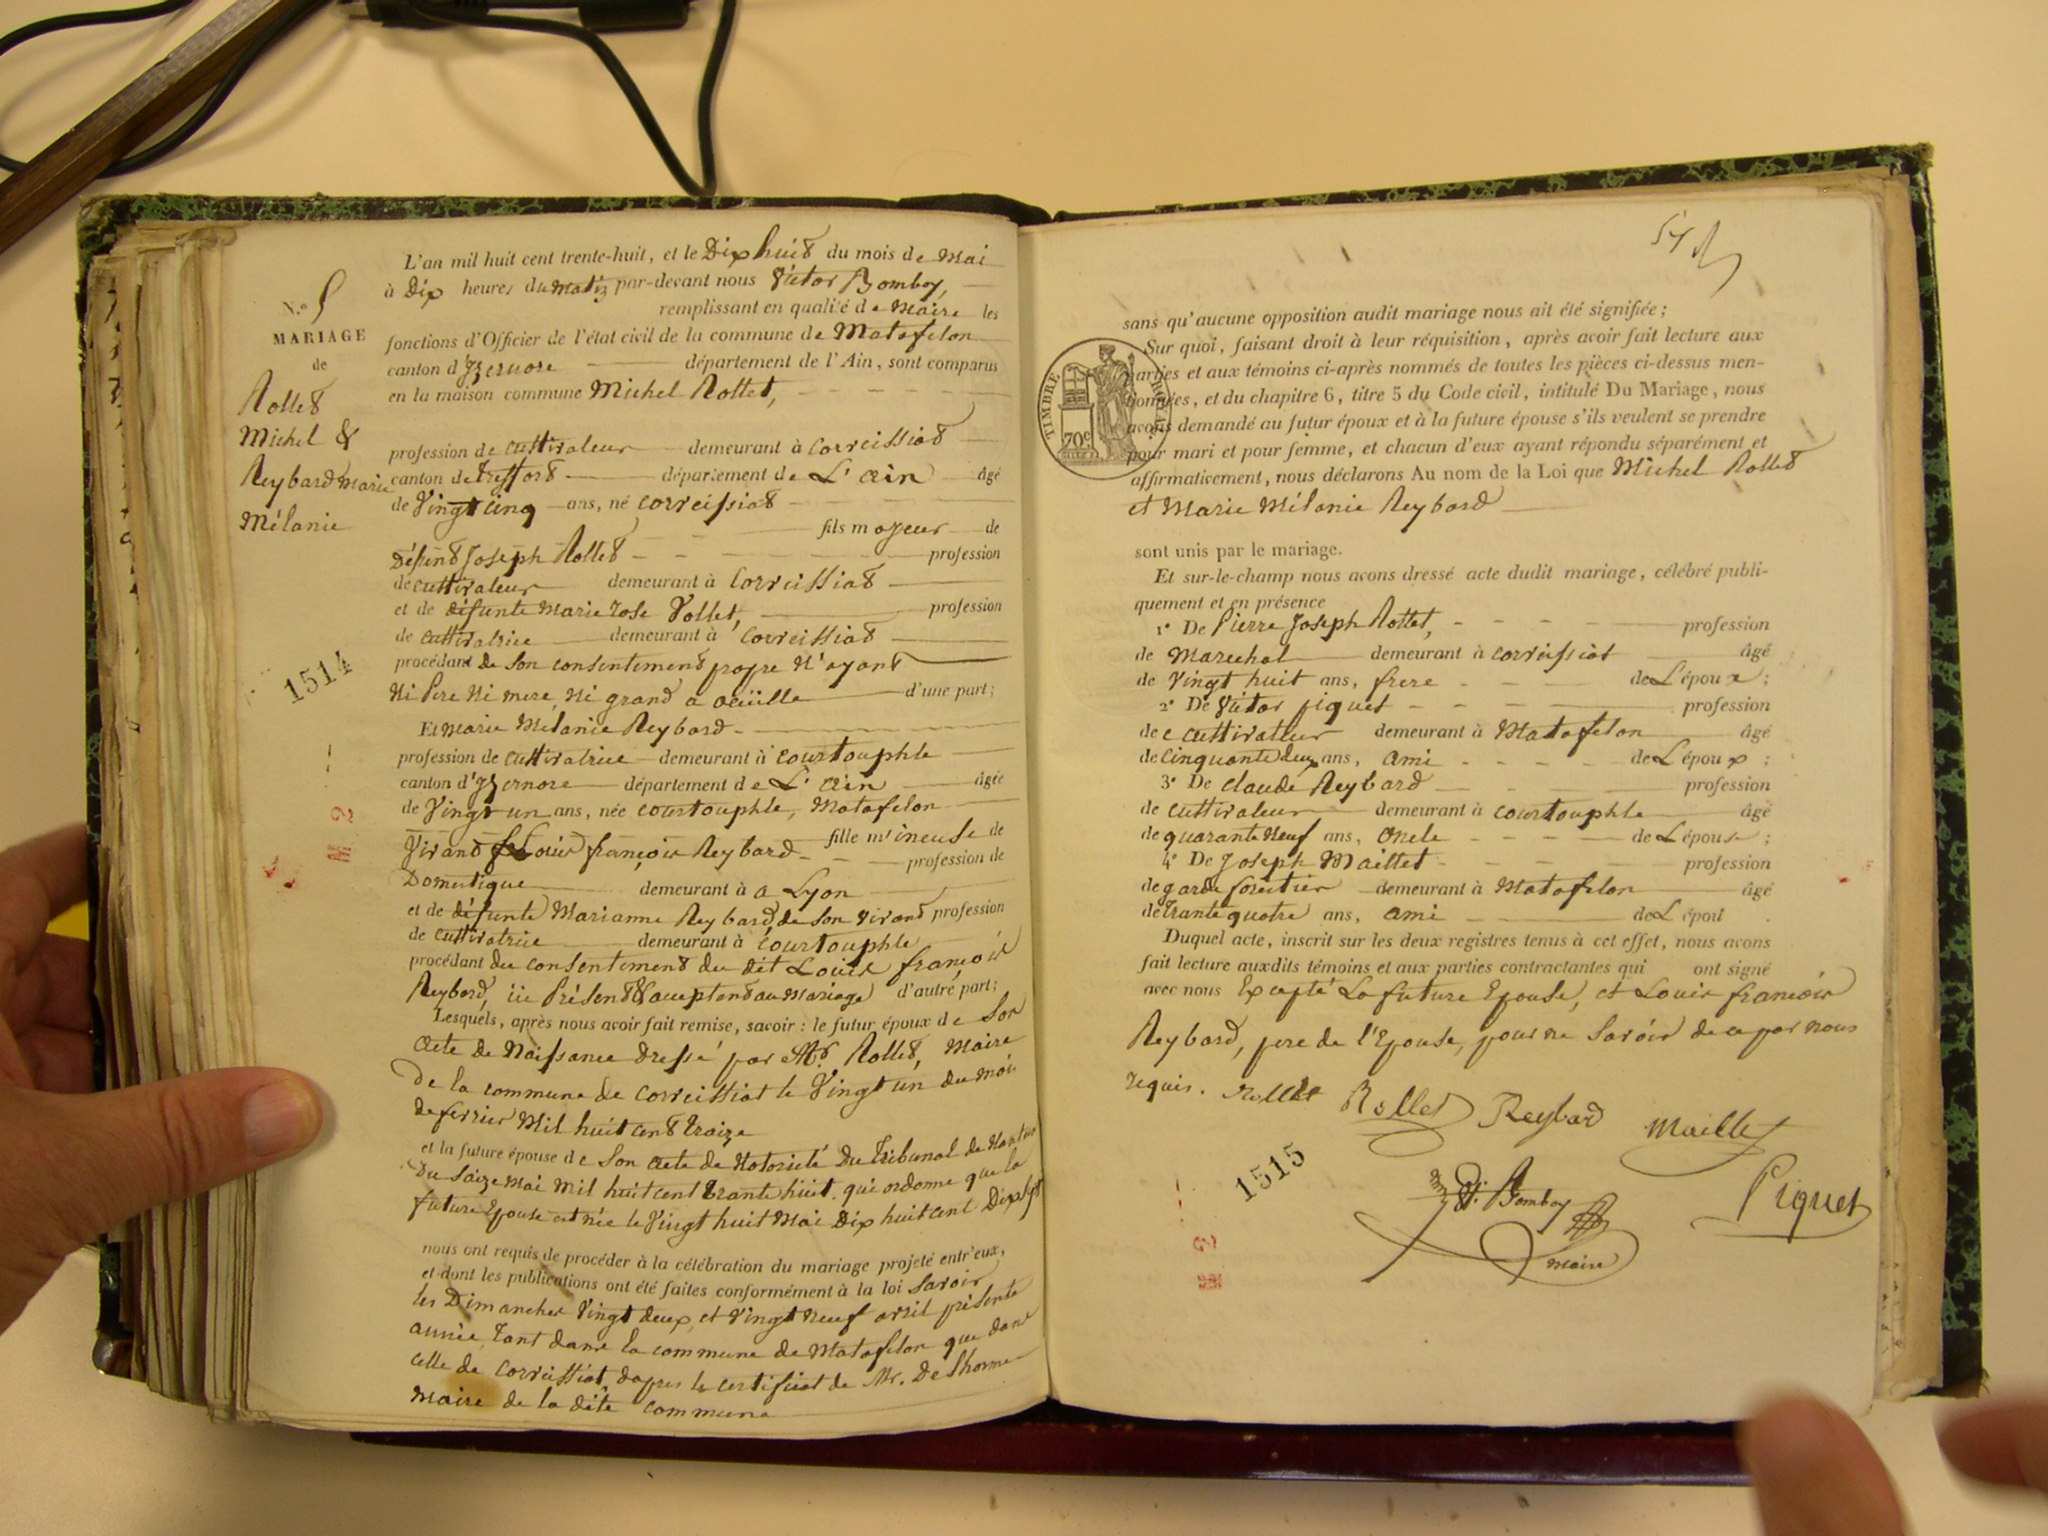 L'an mil huit cent trente-huit, et le Dix huit du mois de Mai
à Dix heures du matin par-devant nous Victor Bomboy,
remplissant en qualité de Maire les
fonctions d'Officier de l'état civil de la commune de Matafelon
canton d'Izernore département de l'Ain, sont comparus
en la maison commune Michel Rollet,
profession de cultivateur demeurant à Corveissiat
canton de treffort département de L'ain âgé
de Vingt cinq ans, né Corveissiat
fils majeur de
Défunt Joseph Rollet profession
de cultivateur demeurant à Corveissiat
et de défunte Marie Rose Vollet, profession
de cultivatrice demeurant à Corveissiat
procédant de son consentement propre N'ayant
Ni Pere Ni mere, Ni grand d'une part;
Et Marie Mélanie Reybard
profession de cultivatrice demeurant à courtouphle
canton d'Izernore département de L'ain âgée
de Vingt un ans, née courtouphle, Matafelon
fille mineuse de
Vivant Louis françois Reybard profession de
Domestique demeurant à a Lyon
et de défunte Marianne Reybard, de son vivant profession
de cultivatrice demeurant à courtouphle
procédant du consentement du dit Louis françois
Reybard, ici Présent & acceptant au Mariage d'autre part;
Lesquels, après nous avoir fait remise, savoir : le futur époux de Son
acte de Naissance dressé par Mr. Rollet, Maire
de la commune de Corveissiat le Vingt un du moi
de fevrier Mil huit cent traize
et la future épouse de Son acte de Notoriété du Tribunal de Nantua
du Saize mai mil huit cent trante huit, qui ordonne que la
future Epouse est née le Vingt huit Mai Dix huit cent Dix sept
nous ont requis de procéder à la célébration du mariage projeté entr'eux,
et dont les publications ont été faites conformément à la loi Savoir
les Dimanches Vingt deux, et Vingt Neuf avril présente
année, tant dans la commune de Matafelon que dans
celle de Corveissiat, dapres le certificat de Mr. De
Maire de la dite commune
N.º 5
MARIAGE
de
Rollet
Michel &
Reybard Marie
Mélanie
1514
M 2
54
TIMBRE ROYAL
70c
sans qu'aucune opposition audit mariage nous ait été signifiée;
Sur quoi, faisant droit à leur réquisition, après avoir fait lecture aux
parties et aux témoins ci-après nommés de toutes les pièces ci-dessus men-
tionnées, et du chapitre 6, titre 5 du Code civil, intitulé Du Mariage, nous
avons demandé au futur époux et à la future épouse s'ils veulent se prendre
pour mari et pour femme, et chacun d'eux ayant répondu séparément et
affirmativement, nous déclarons Au nom de la Loi que Michel Rollet
et Marie Mélanie Reybard
sont unis par le mariage.
Et sur-le-champ nous avons dressé acte dudit mariage, célébré publi-
quement et en présence
1º De Pierre Joseph Rollet, profession
de Marechal demeurant à corveissiat âgé
de Vingt huit ans, frere de L'époux;
2º De Victor piquet profession
de cultivateur demeurant à Matafelon âgé
de Cinquante deux ans, ami de L'époux;
3º De Claude Reybard profession
de cultivateur demeurant à courtouphle âgé
de quarante Neuf ans, Oncle de L'épouse;
4º De Joseph Maillet profession
de garde forêtier demeurant à Matafelon âgé
de trante quatre ans, ami de L épou
Duquel acte, inscrit sur les deux registres tenus à cet effet, nous avons
fait lecture auxdits témoins et aux parties contractantes qui ont signé
avec nous Excepté La future Epouse, et Louis françois
Reybard, pere de l'Epouse, pour ne Savoir de ce par nous
requis. Rollet Rollet Reybard Maillet
Vr. Bomboy Piquet
maire
1515
M 2